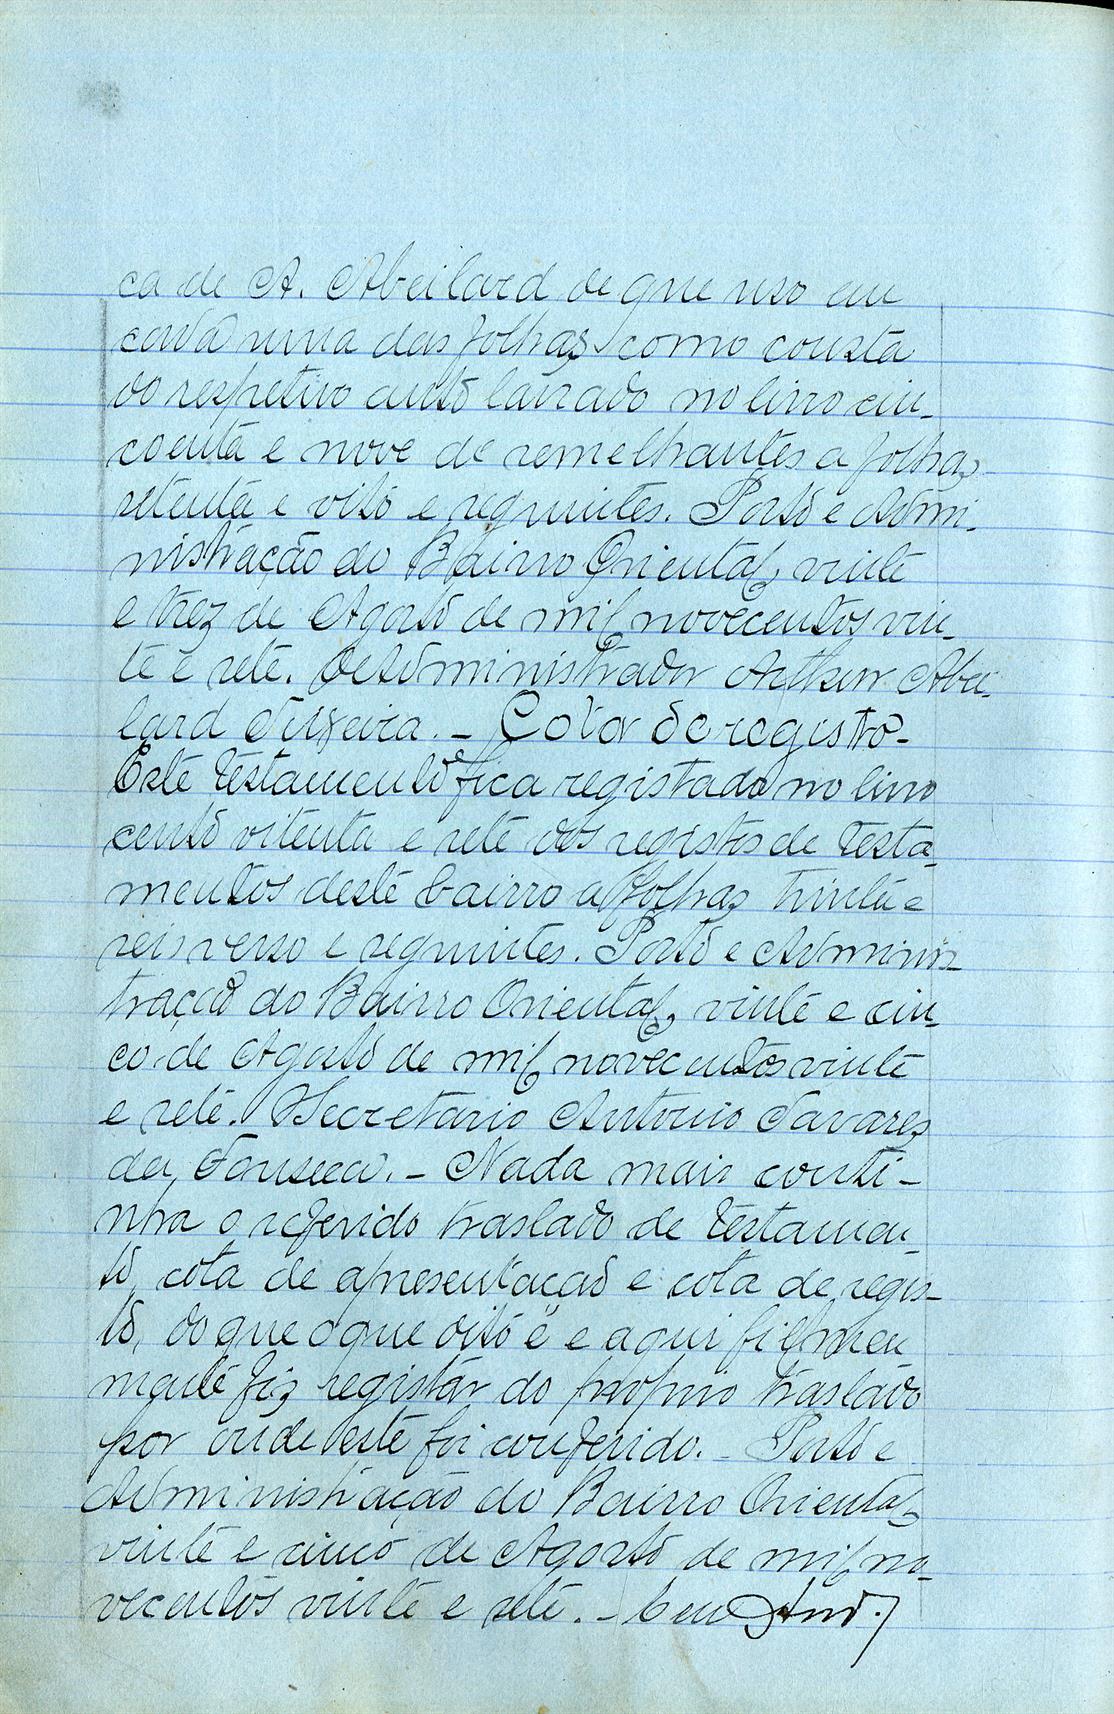 ca de A. Abeilard de que uso em
cada uma das folhas como consta
do respetivo auto lavrado no livro cin-
coenta e nove de semelhantes a folhas
setenta e oito e seguintes. Porto e Admi-
nistração do Bairro Oriental, vinte
e trez de Agosto de mil novecentos vin-
te e sete. O Administrador Arthur Abei-
lard Teixeira. - Cota de registo -
Este testamento fica registado no livro
cento oitenta e sete dos registos de testa-
mentos deste bairro a folhas trinta e
seis verso e seguintes. Porto e Adminis-
tração do Bairro Oriental, vinte e cin-
co de Agosto de mil novecentos vinte
e sete. O Secretario Antonio Tavares
da Fonseca. - Nada mais conti-
nha o referido traslado de testamen-
to, cota de apresentação e cota de regis-
to, do que o que dito é e aqui fielmen
mente fiz registar do proprio traslado
por onde este foi conferido. - Porto e
Administração do Bairro Oriental,
vinte e cinco de Agosto de mil no-
vecentos vinte e sete. - E eu